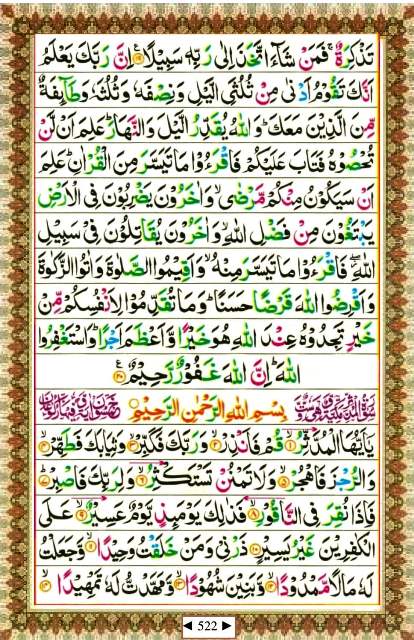 تَذْكِرَةٌ ۚ فَمَنْ شَآءَ اتَّخَذَ اِلٰى رَبِّهٖ سَبِيْلًا ۟۱۹ اِنَّ رَبَّكَ يَعْلَمُ
اَنَّكَ تَقُوْمُ اَدْنٰى مِنْ ثُلُثَيِ الَّيْلِ وَنِصْفَهٗ وَثُلُثَهٗ وَطَآئِفَةٌ
مِّنَ الَّذِيْنَ مَعَكَ ؕ وَاللّٰهُ يُقَدِّرُ الَّيْلَ وَالنَّهَارَ ؕ عَلِمَ اَنْ لَّنْ
تُحْصُوْهُ فَتَابَ عَلَيْكُمْ فَاقْرَءُوْا مَا تَيَسَّرَ مِنَ الْقُرْاٰنِ ؕ عَلِمَ
اَنْ سَيَكُوْنُ مِنْكُمْ مَّرْضٰى ۙ وَاٰخَرُوْنَ يَضْرِبُوْنَ فِى الْاَرْضِ
يَبْتَغُوْنَ مِنْ فَضْلِ اللّٰهِ ۙ وَاٰخَرُوْنَ يُقَاتِلُوْنَ فِيْ سَبِيْلِ
اللّٰهِ ۖ فَاقْرَءُوْا مَا تَيَسَّرَ مِنْهُ ۙ وَاَقِيْمُوا الصَّلٰوةَ وَاٰتُوا الزَّكٰوةَ
وَاَقْرِضُوا اللّٰهَ قَرْضًا حَسَنًا ؕ وَمَا تُقَدِّمُوْا لِاَنْفُسِكُمْ مِّنْ
خَيْرٍ تَجِدُوْهُ عِنْدَ اللّٰهِ هُوَ خَيْرًا وَّاَعْظَمَ اَجْرًا ؕ وَاسْتَغْفِرُوا
اللّٰهَ ؕ اِنَّ اللّٰهَ غَفُوْرٌ رَّحِيْمٌ ۟۲۰
بِسْمِ اللّٰهِ الرَّحْمٰنِ الرَّحِيْمِ
يٰۤاَيُّهَا الْمُدَّثِّرُ ۟۱ قُمْ فَاَنْذِرْ ۟۲ وَرَبَّكَ فَكَبِّرْ ۟۳ وَثِيَابَكَ فَطَهِّرْ ۟۴
وَالرُّجْزَ فَاهْجُرْ ۟۵ وَلَا تَمْنُنْ تَسْتَكْثِرُ ۟۶ وَلِرَبِّكَ فَاصْبِرْ ۟۷
فَاِذَا نُقِرَ فِى النَّاقُوْرِ ۟۸ فَذٰلِكَ يَوْمَئِذٍ يَّوْمٌ عَسِيْرٌ ۟۹ عَلَى
الْكٰفِرِيْنَ غَيْرُ يَسِيْرٍ ۟۱۰ ذَرْنِيْ وَمَنْ خَلَقْتُ وَحِيْدًا ۟۱۱ وَّجَعَلْتُ
لَهٗ مَالًا مَّمْدُوْدًا ۟۱۲ وَّبَنِيْنَ شُهُوْدًا ۟۱۳ وَّمَهَّدْتُّ لَهٗ تَمْهِيْدًا ۟۱۴
◄ 522 ►